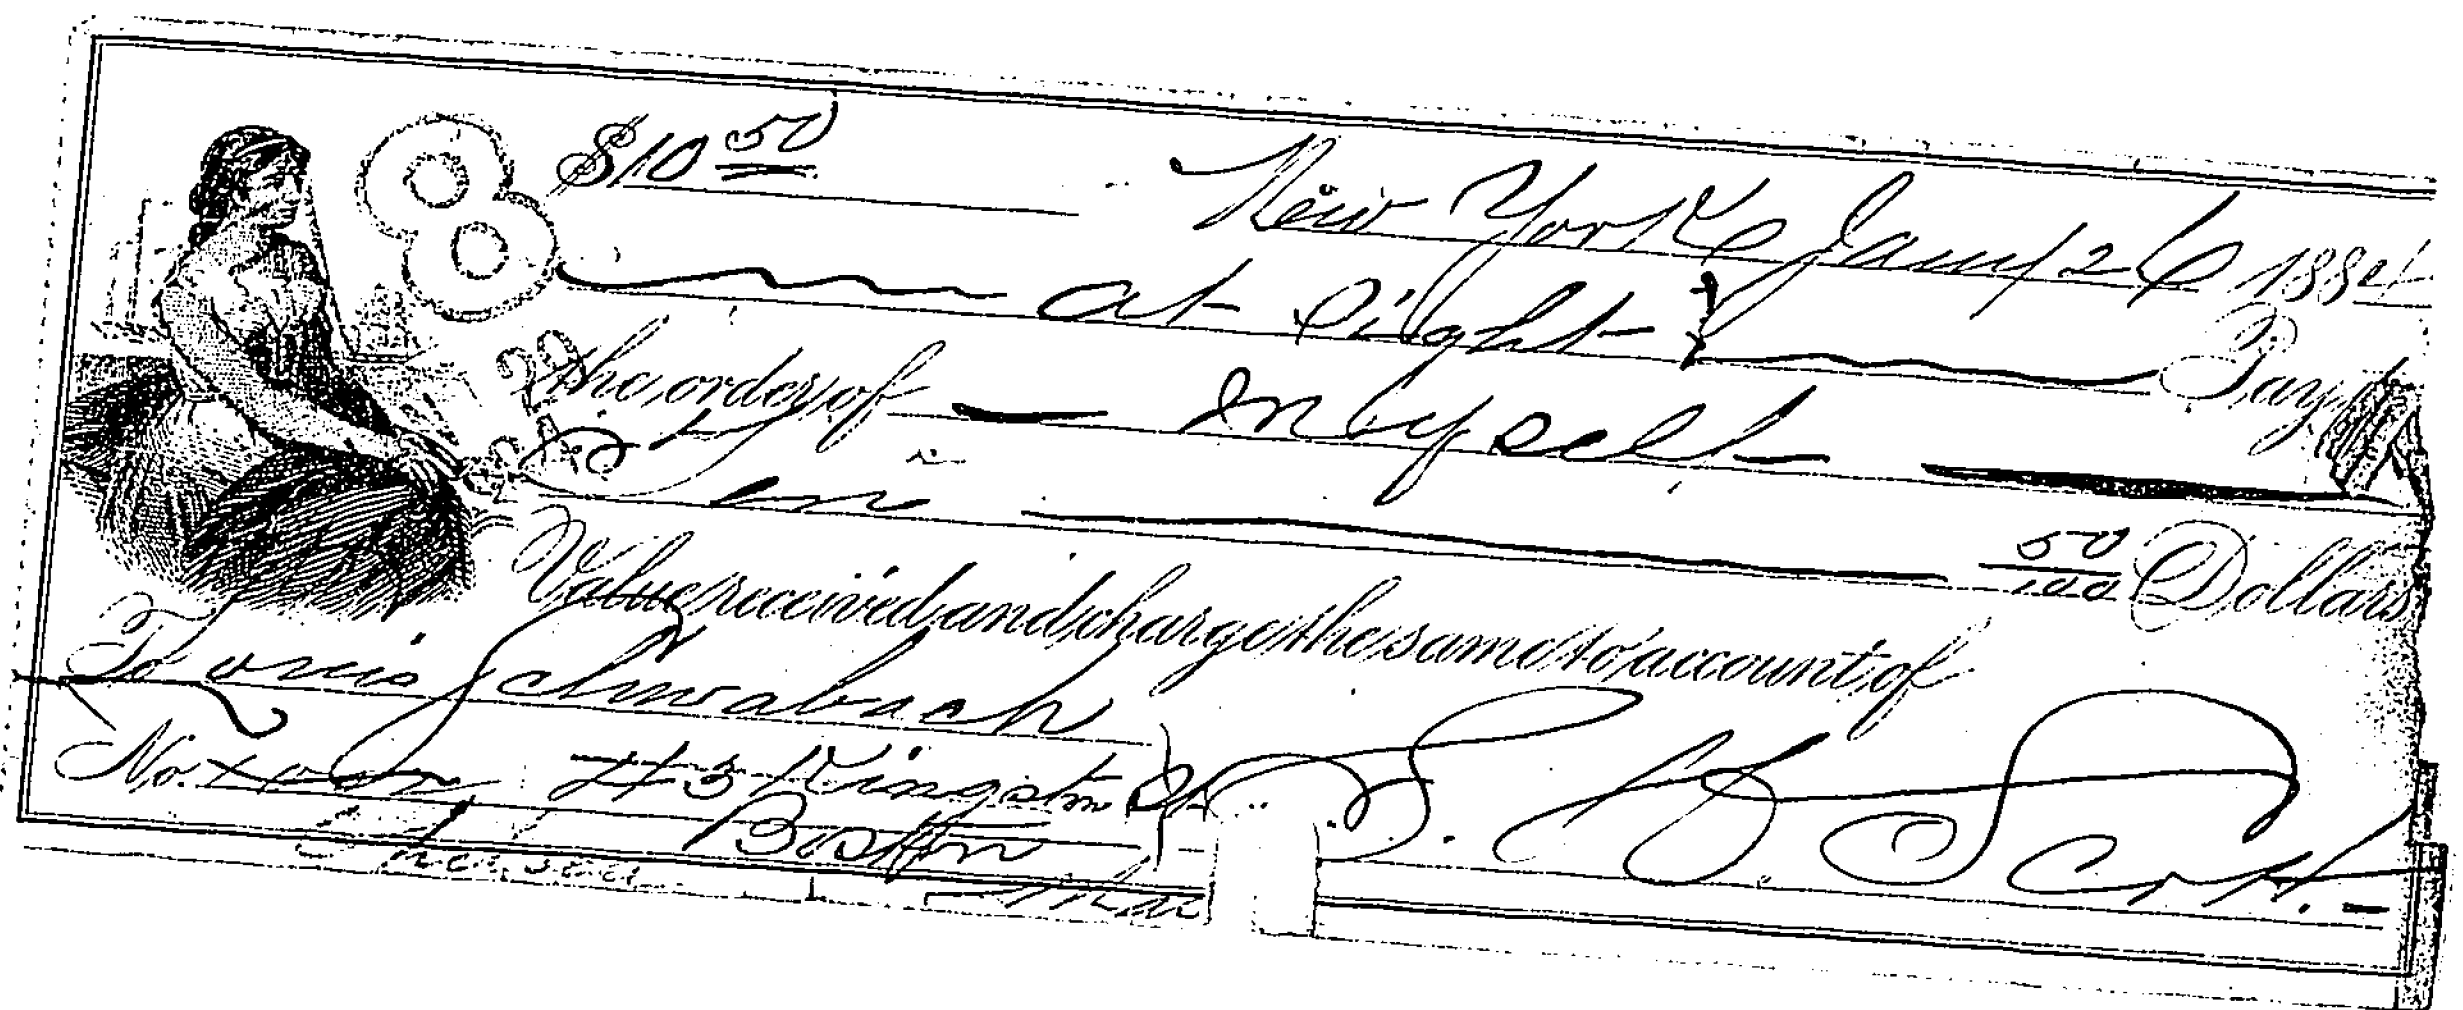 $10 50
New York Jany 26 1884
at sight Pay to
the order of Myself
Ten 50/100 Dollars
Value received and charge the same to account of
To Louis Schwabach
No. 43 Kingston St
Boston
Mass
Scott.